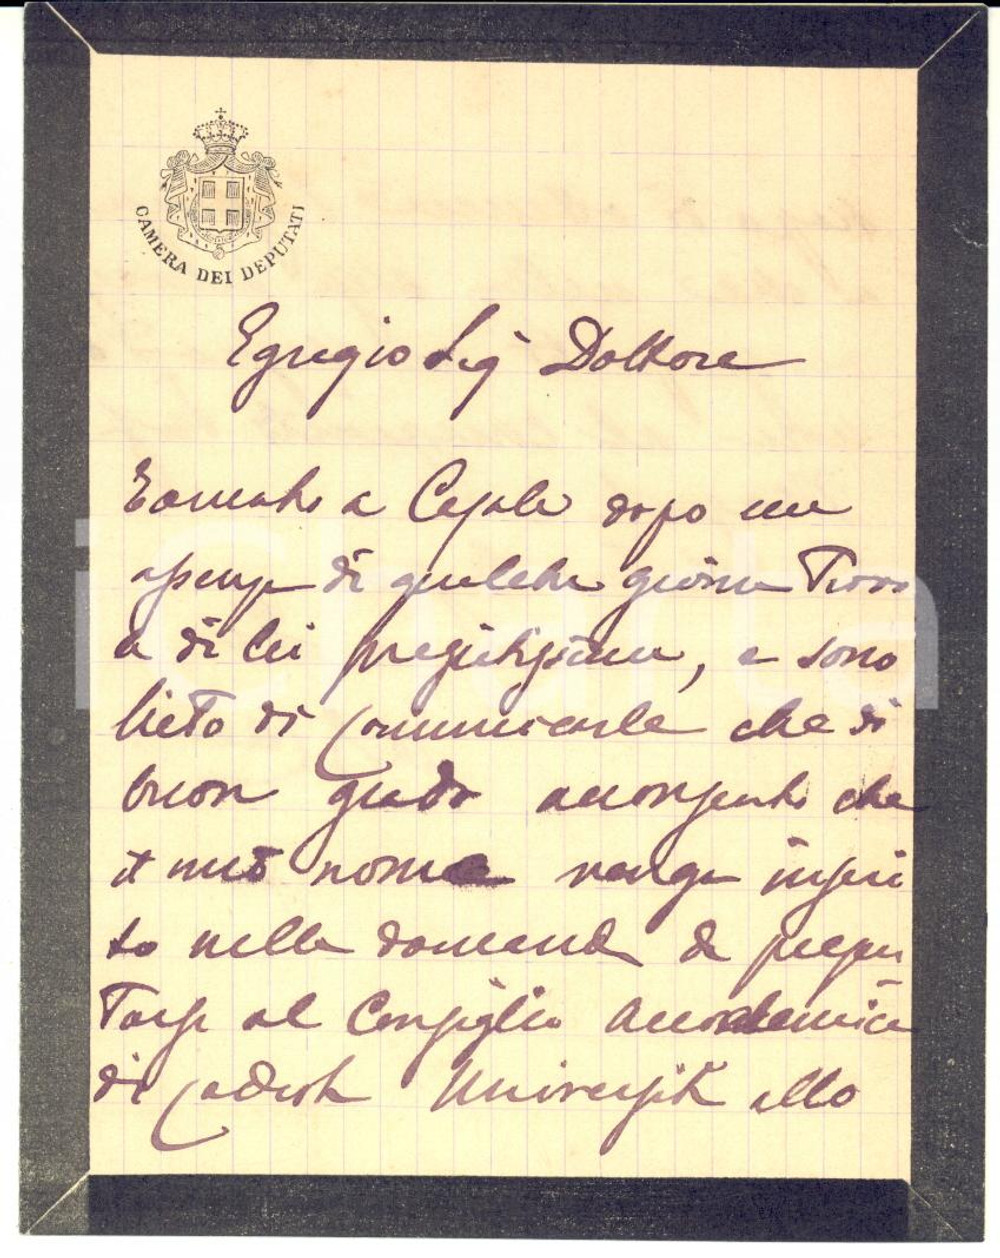 CAMERA DEI DEPUTATI
Egregio Sig Dottore
a dopo una
di qualche giorno Trovo
a di lei pregiatissima, e sono
lieto di comunicarle che di
buon grado acconsento che
il mio nome venga inseri
to nella domanda da presen
tarsi al Consiglio Accademico
di codesta Università allo